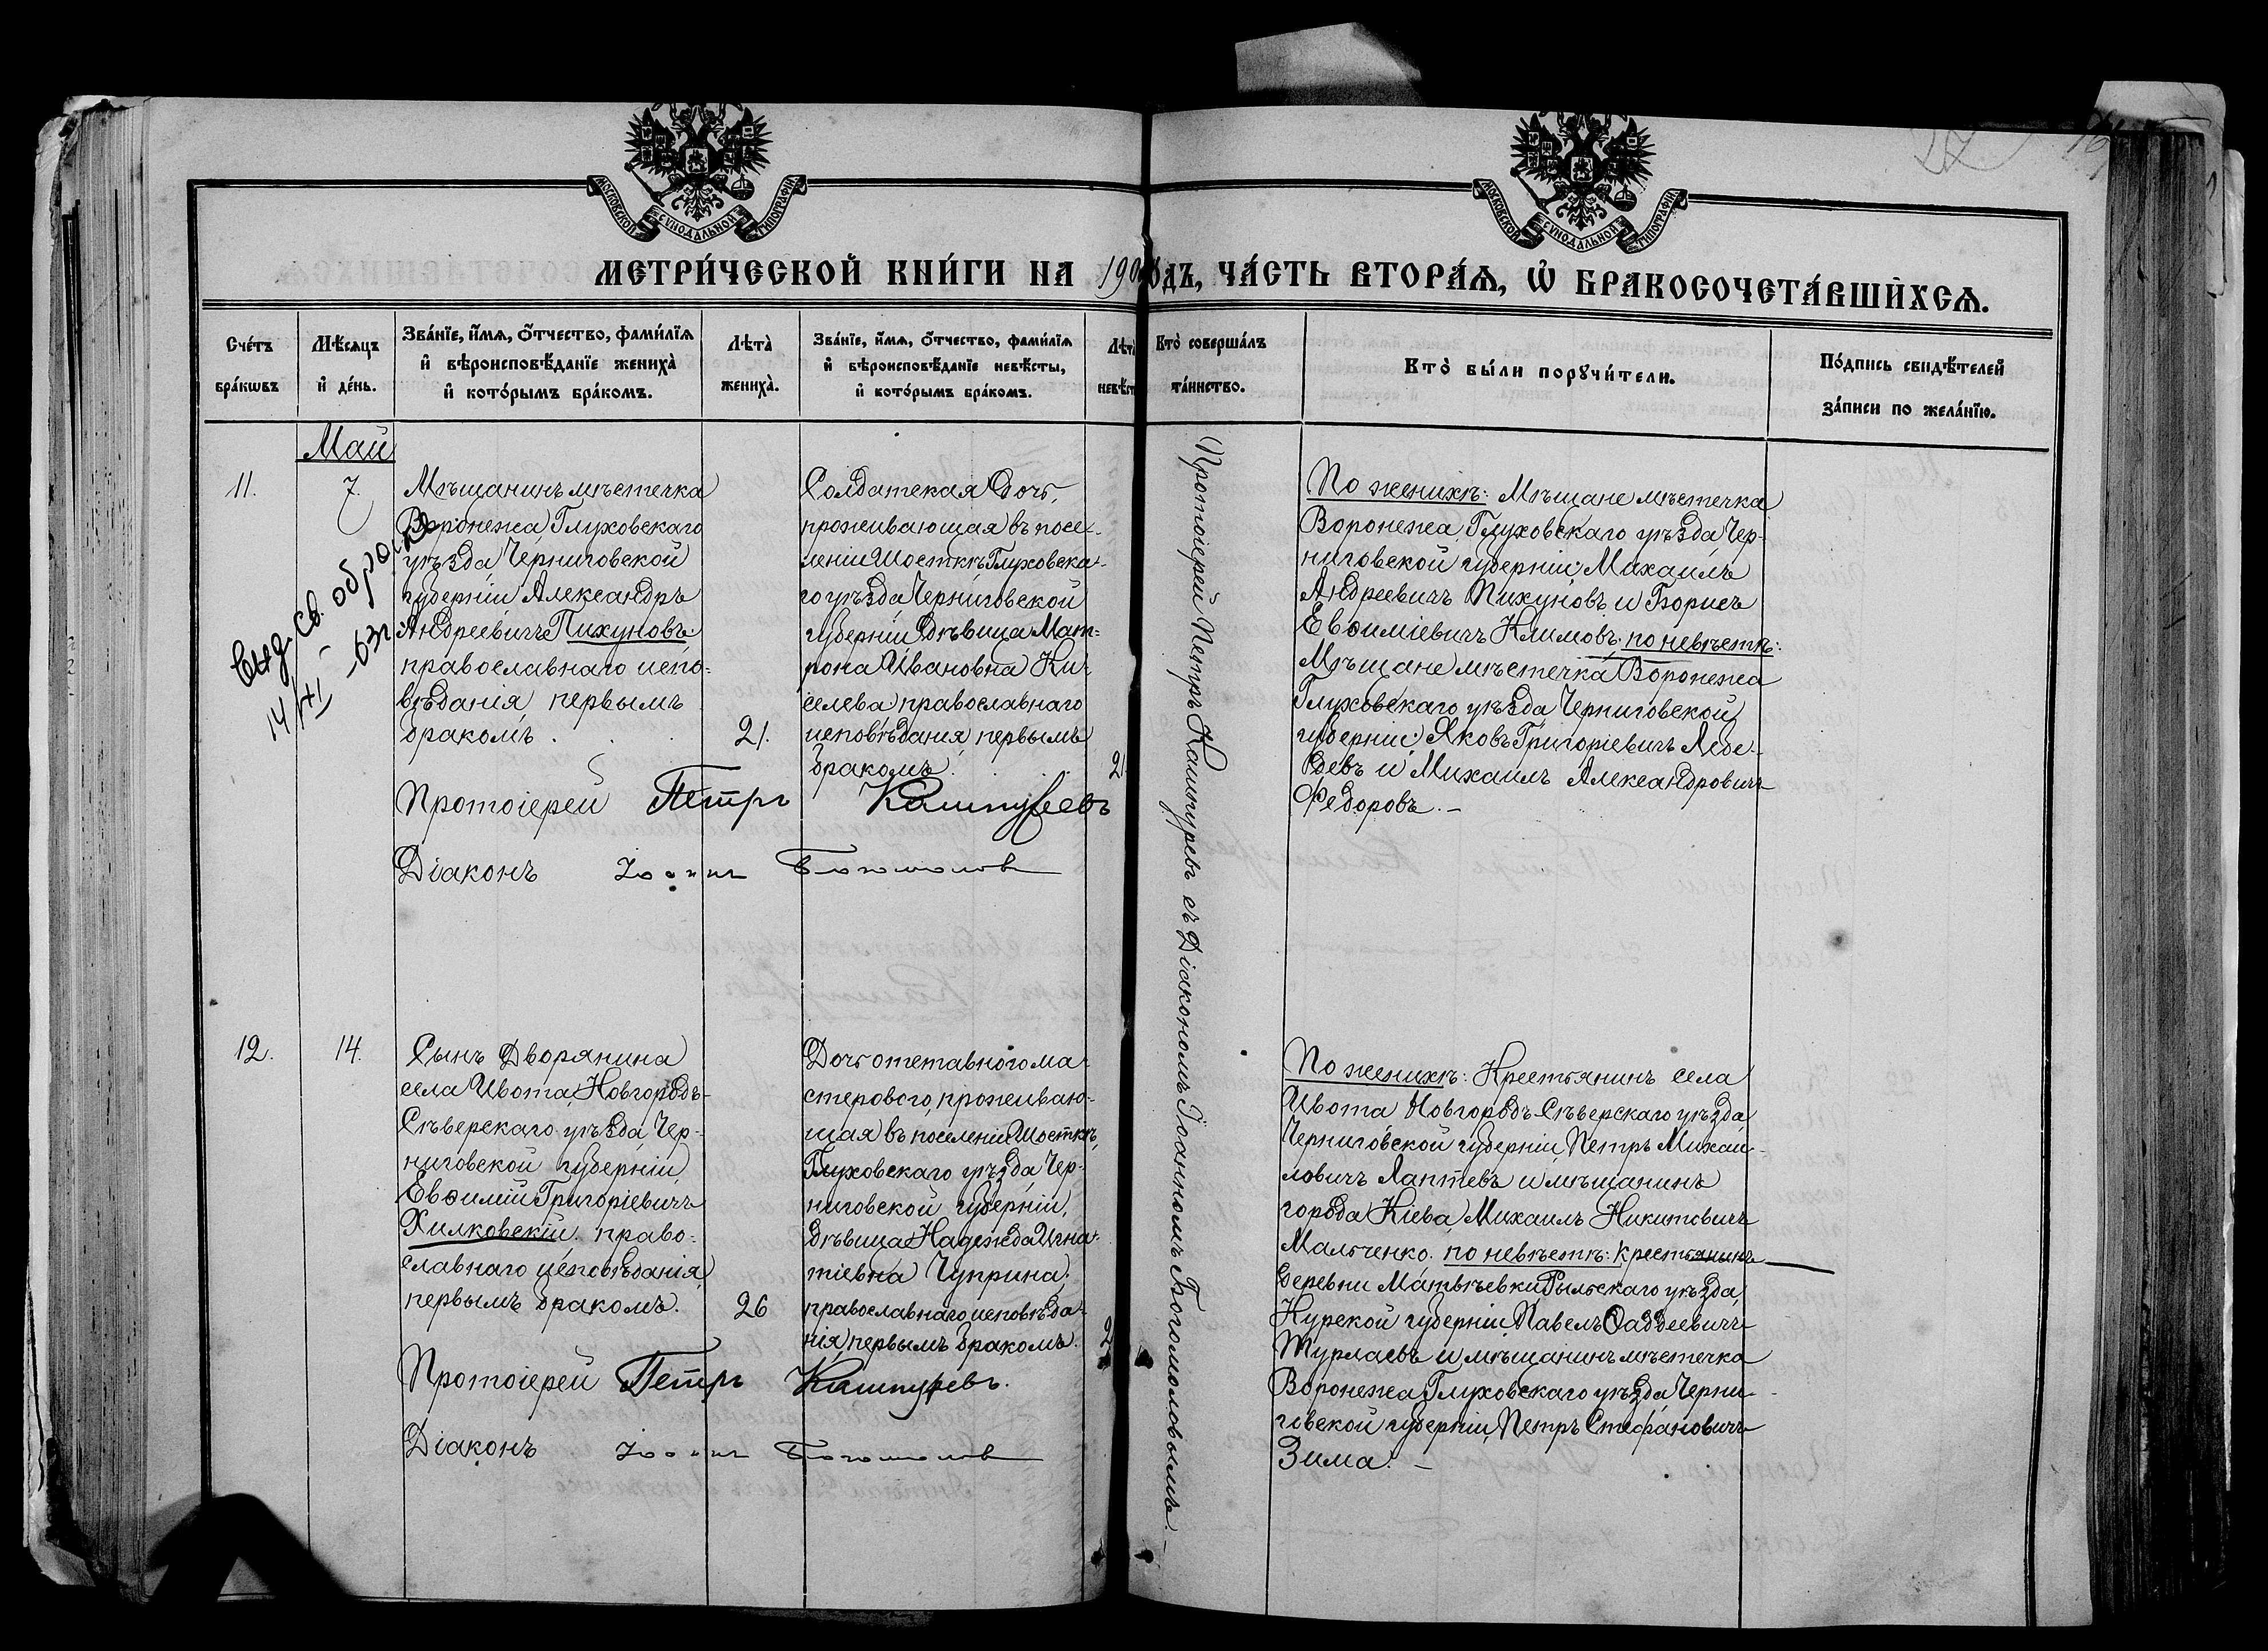 МОСКОВСКОЙ СѴНОДАЛЬНОЙ ТИПОГРАФІИ
МОСКОВСКОЙ СѴНОДАЛЬНОЙ ТИПОГРАФІИ
МЕТРИ́ЧЕСКОЙ КНИ́ГИ НА 190 ГОДЪ, ЧА́СТЬ ВТОРА́Ѧ, Ѡ БРАКОСОЧЕТА́ВШИХСѦ.
Сче́тъ
бра́кѡвъ
Мѣ́сяцъ
и де́нь.
Зва́нїе, и́мя, о́тчество, фами́лїя
и вѣроисповѣ́данїе жениха̀
и кото́рымъ бра́комъ.
Лѣта̀
жениха̀.
Зва́нїе, и́мя, о́тчество, фами́лїя
и вѣроисповѣ́данїе невѣ́сты,
и кото́рымъ бра́комъ.
Лѣта̀
невѣст
Кто̀ соверша́лъ
та́инство.
Кто̀ бы́ли порꙋчи́тели.
По́дпись свидѣ́телей
за́писи по жела́нїю.
Май
11.
7.
Мѣщанинъ мѣстечка
Воронежа Глуховскаго
уѣзда Черниговской
губерніи Александръ
Андреевичъ Пихуновъ
православнаго испо-
вѣданія, первымъ
бракомъ
21.
Солдатская Дочь,
проживающая въ посе-
леніи Шосткѣ Глуховска-
го уѣзда Черниговской
губерніи Дѣвица Мат-
рона Ивановна Ки-
селева, православнаго
исповѣданія, первымъ
бракомъ.
21
Выд. Св. о брак
14/XI - 63г.
Протоіерей Петръ Кашпуревъ
Діаконъ Іоаннъ Богомоловъ
Протоіерей Петръ Кашпуревъ съ Діакономъ Іоанномъ Богомоловымъ.
По женихѣ: Мѣщане мѣстечка
Воронежа, Глуховскаго уѣзда Чер-
ниговской губерніи: Михаилъ
Андреевичъ Пихуновъ и Борисъ
Евѳиміевичъ Климовъ; по невѣстѣ:
Мѣщане мѣстечка Воронежа
Глуховскаго уѣзда Черниговской
губерніи: Яковъ Григоріевичъ Лебе-
девъ и Михаилъ Александровичъ
Федоровъ. –
12.
14.
Сынъ Дворянина
села Ивота, Новгородъ-
Сѣверскаго уѣзда, Чер-
ниговской губерніи,
Евѳимій Григоріевичъ
Хилковскій, право-
славнаго исповѣданія,
первымъ бракомъ.
26
Дочь отставного ма-
стерового, проживаю-
щая въ поселеніи Шосткѣ,
Глуховскаго уѣзда, Чер-
ниговской губерніи,
дѣвица Надежда Игна-
тіевна Чуприна,
православнаго исповѣда-
нія, первымъ бракомъ.
2
Протоіерей Петръ Кашпуревъ.
Діаконъ Іоаннъ Богомоловъ
По женихѣ: Крестьянинъ села
Ивота Новгородъ-Сѣверскаго уѣзда,
Черниговской губерніи, Петръ Михаи-
ловичъ Лаптевъ и мѣщанинъ
города Кіева, Михаилъ Никитовичъ
Мальченко. по невѣстѣ: Крестьянинъ
деревни Матвѣевки, Рыльскаго уѣзда,
Курской губерніи, Павелъ Ѳаддеевичъ
Журлаевъ и мѣщанинъ мѣстечка
Воронежа, Глуховскаго уѣзда, Черни-
говской губерніи, Петръ Стефановичъ
Зима. –